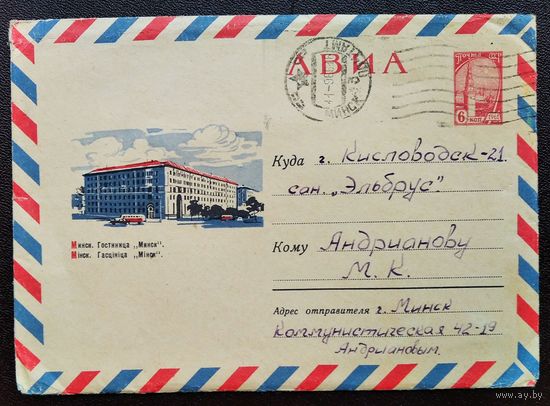 АВИА
ПОЧТА СССР
6
КОП
МИНСК
Куда г. Кисловодск-21
сан. „Эльбрус".
Кому Андрианову
М. К.
Минск. Гостиница „Минск".
Мінск. Гасцініца „Мінск".
Адрес отправителя г. Минск
Коммунистическая 42-19
Андриановым.
www.ay.by